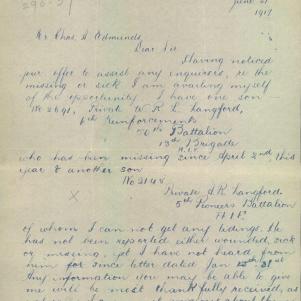 June 21
1917
Mr Chas. A Edmunds
Dear Sir
Having noticed
your offer to assist any enquirers, re the
missing or sick I am availing myself
of the opportunity I have one son
No 2691, Private W. R. Langford,
6th Reinforcements
50th Battalion
13th Brigade
A.I.F.
who has been missing since April 2nd this
year & another son
No 2148
Private A R Langford
5th Pioneers Battalion
A.I.F.
of whom I can not get any tidings. He
has not been reported either wounded, sick
or missing, yet I have not heard from
him for since letter dated Jan
Any information you may be able to give
me will be most thankfully received, as